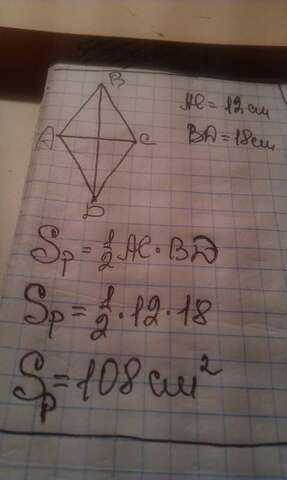 B
AC = 12 см
A C
BD = 18 см
D
Sp = 1/2 AC · BD
Sp = 1/2 · 12 · 18
Sp = 108 см²